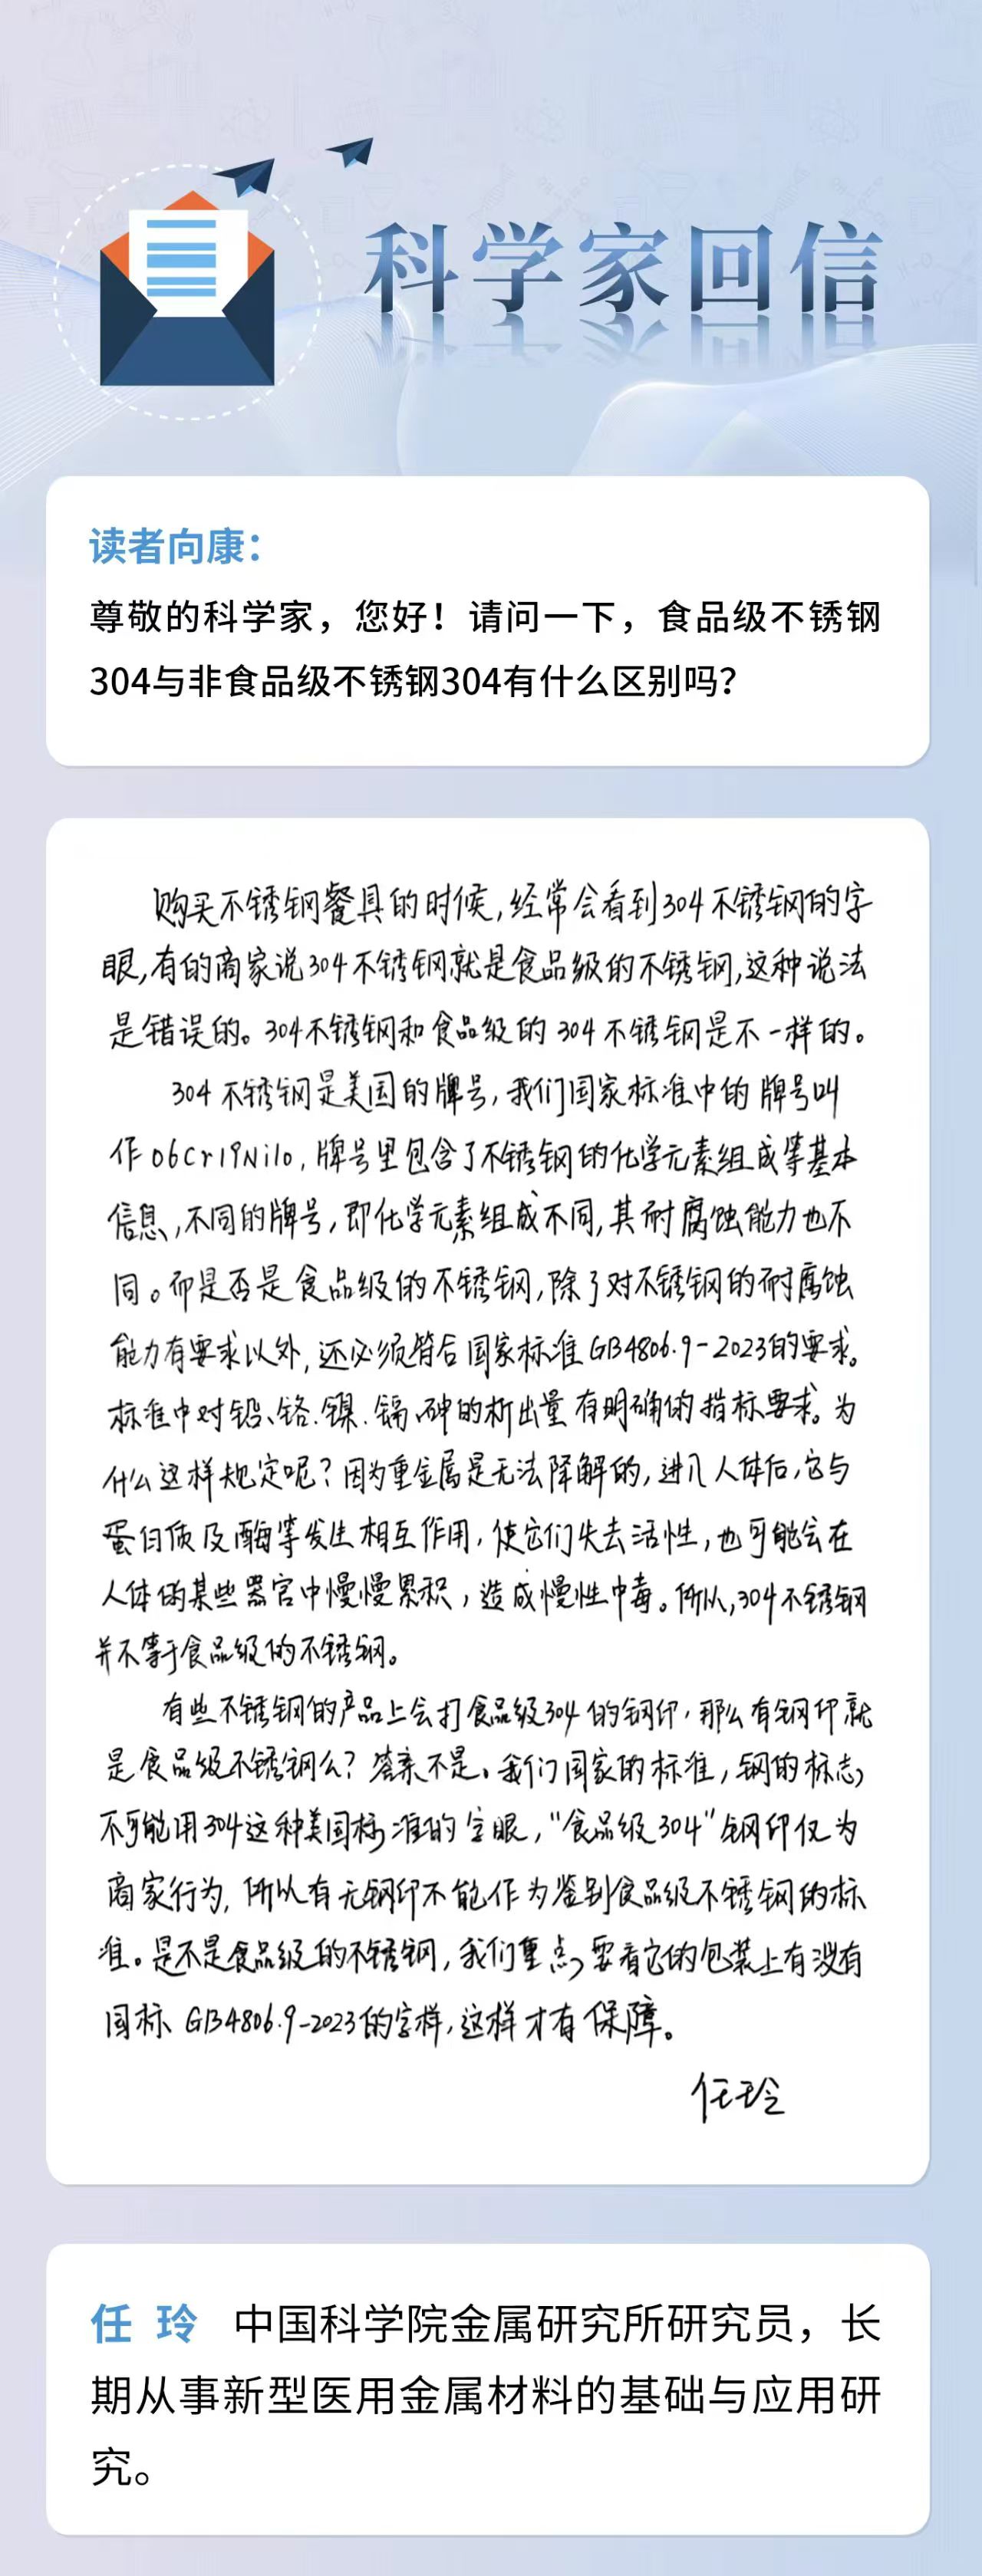 科学家回信
读者向康：
尊敬的科学家，您好！请问一下，食品级不锈钢
304与非食品级不锈钢304有什么区别吗？
购买不锈钢餐具的时候，经常会看到304不锈钢的字
眼，有的商家说304不锈钢就是食品级的不锈钢，这种说法
是错误的。304不锈钢和食品级的304不锈钢是不一样的。
304不锈钢是美国的牌号，我们国家标准中的牌号叫
作06Cr19Ni10，牌号里包含了不锈钢的化学元素组成等基本
信息，不同的牌号，即化学元素组成不同，其耐腐蚀能力也不
同。而是否是食品级的不锈钢，除了对不锈钢的耐腐蚀
能力有要求以外，还必须符合国家标准GB4806.9-2023的要求。
标准中对铅、铬、镍、镉、砷的析出量有明确的指标要求。为
什么这样规定呢？因为重金属是无法降解的，进入人体后，它与
蛋白质及酶等发生相互作用，使它们失去活性，也可能会在
人体的某些器官中慢慢累积，造成慢性中毒。所以，304不锈钢
并不等于食品级的不锈钢。
有些不锈钢的产品上会打食品级304的钢印，那么有钢印就
是食品级不锈钢么？答案不是。我们国家的标准，钢的标志
不可能用304这种美国标准的字眼，“食品级304”钢印仅为
商家行为，所以有无钢印不能作为鉴别食品级不锈钢的标
准。是不是食品级的不锈钢，我们重点要看它的包装上有没有
国标GB4806.9-2023的字样，这样才有保障。
任玲
任 玲 中国科学院金属研究所研究员，长
期从事新型医用金属材料的基础与应用研
究。